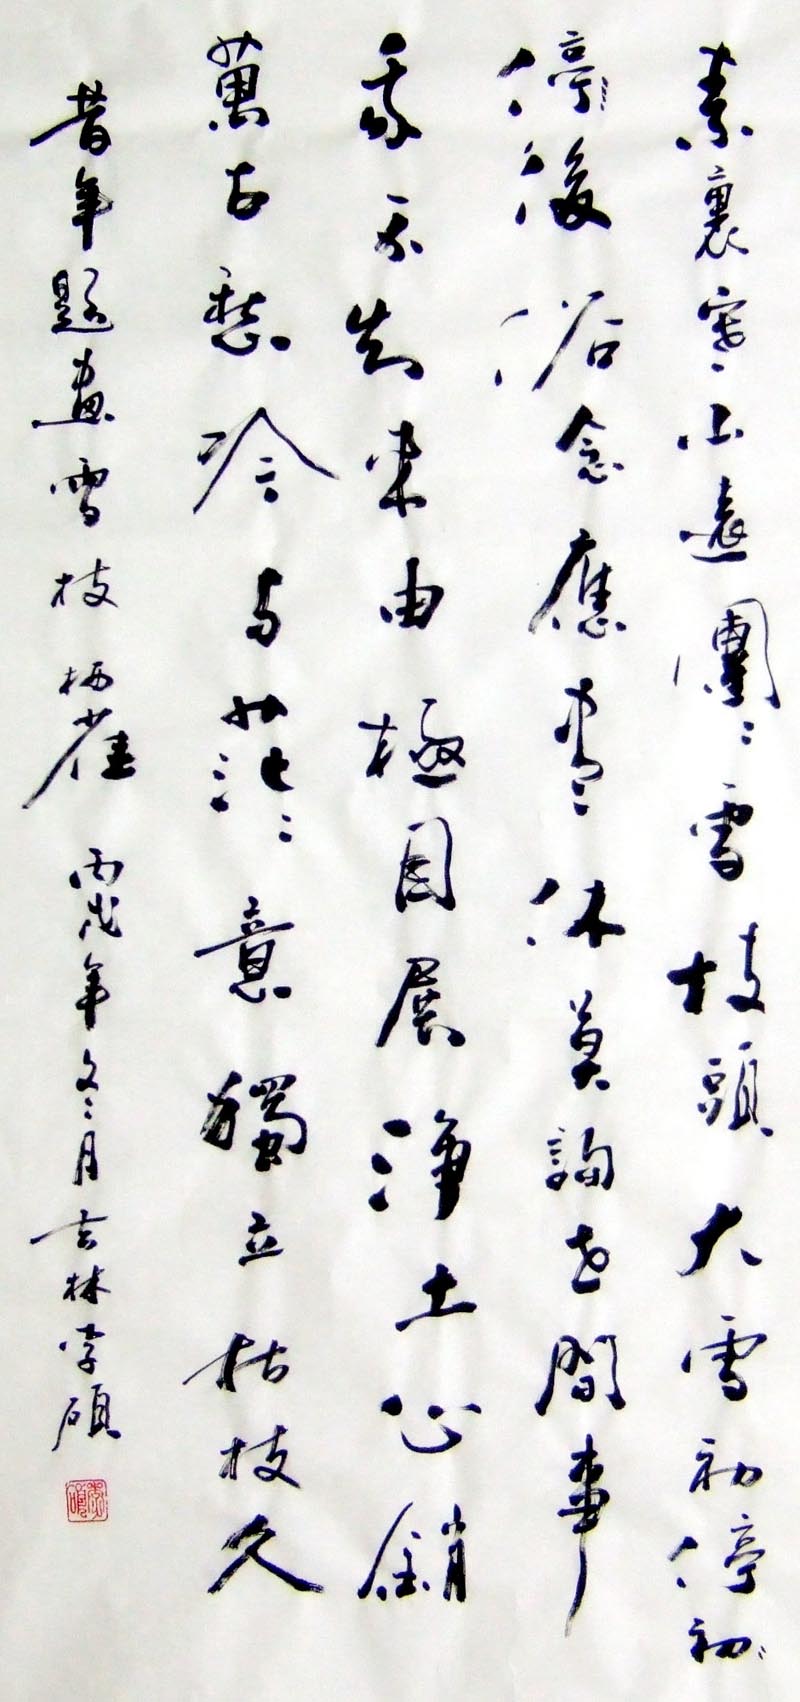 素裹寒山遠團〻雪枝頭大雪初停初〻
停〻後俗念應休莫詢世間事
我不知来由極目展淨土心銷
萬古愁冷与茫〻意獨立枯枝久
昔年題畫雪枝栖雀 丙戌年冬月吉林李碩